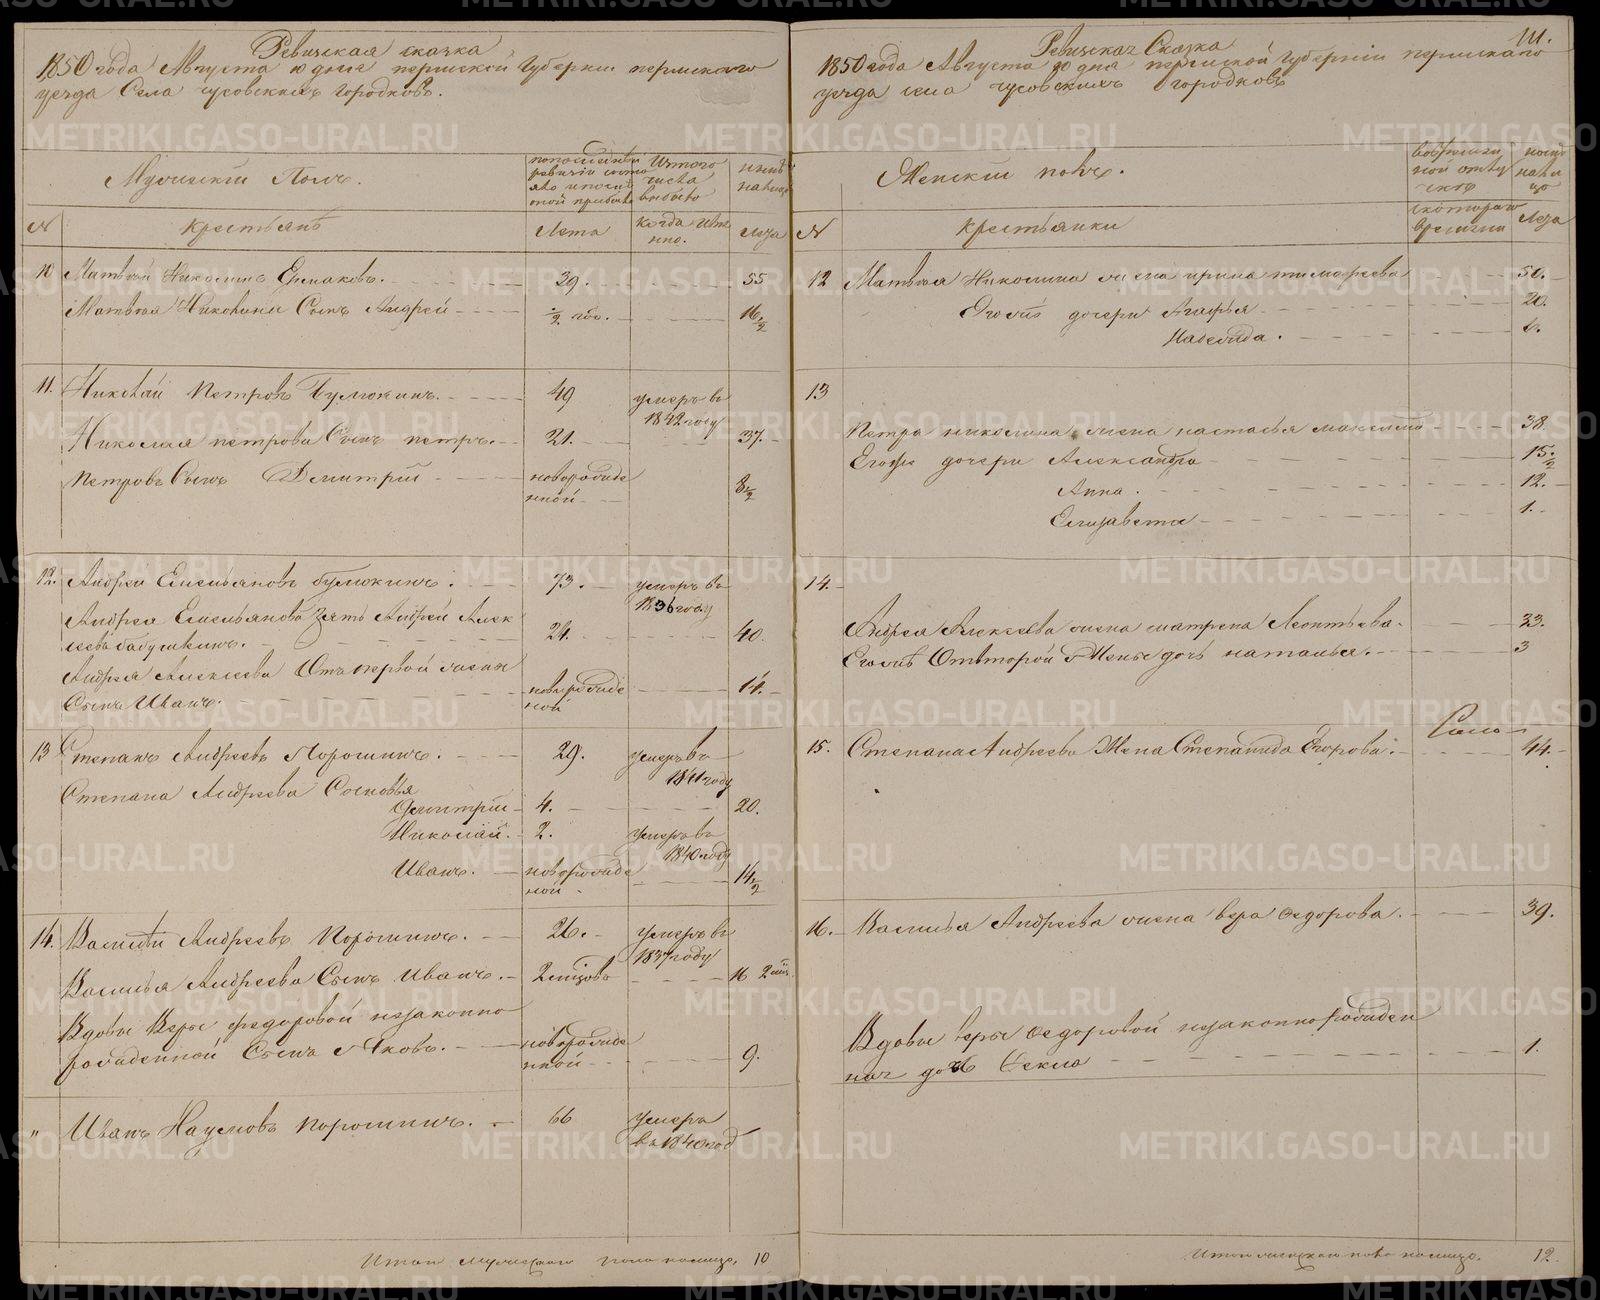 Ревизская сказка
1850 года Августа 10 дня пермской Губернии пермского
уезда Села чусовскихъ городковъ.
Мужеский Полъ.
по последней
ревизии состо
яло и после
оной прибыло
Изтого
числа
выбыло
ныне
налицо
№
крестьянъ
Лета
когда име
нно.
Лета
10
Матвей Николинъ Ермаковъ.
39.
55
Матвея Николина Сынъ Андрей
½ год.
16½
11.
Николай Петровъ Булюкинъ.
49
умеръ въ
1842 году
Николая петрова Сынъ петръ.
21.
37.
Петровъ Сынъ Дмитрий
новорожде
нной
8½
12.
Андреи Емельяновъ булюкинъ.
73.
умеръ въ
1836 году
Андрея Емельянова Зять Андрей Алек
сеевъ бабушкинъ.
24.
40.
Андрея Алексеева Отъ первой жены
Сынъ Иванъ.
новорожде
ной
14.
13
Степанъ Андреевъ Порошинъ.
29.
умеръ въ
1841 году
Степана Андреева Сыновья
Дмитрии
4.
20.
Николай.
2.
умеръ въ
1840 году
Иванъ.
новорожде
ной
14½
14.
Василий Андреевъ Порошинъ.
26.
умеръ въ
1837 году
Василья Андреева Сынъ Иванъ.
16
Вдовы Веры федоровой незаконно
рожденной Сынъ Яковъ.
новорожде
нной
9.
"
Иванъ Наумовъ порошинъ.
66
умеръ
въ 1840 год
Итого мужескаго пола налицо. 10
Ревизская Сказка
1850 года Августа 10 дня пермской Губернии пермскаго
уезда села чусовскихъ городковъ
Женский полъ.
№
крестьянки
скотораго
времени
Лета
12
Матвея Николина жена ирина тимофеева
50.
Егожъ дочери Агафья
20.
Надежда.
6.
13
Петра николина жена настасья максимо
38.
Егожъ дочери Александра
15½
Анна.
12.
Елизавета
1.
14.
Андрея Алексеева жена матрена Леонтьева.
33.
Егожъ Отвторой Жены дочь наталья.
3
15.
Степана Андреева Жена Степанида Егорова.
44.
16.
Василья Андреева жена вера федорова.
39.
Вдовы веры федоровой незаконнорожден
ная дочь Фекла
1.
Итого женскаго пола налицо. 12.
METRIKI.GASO-URAL.RU